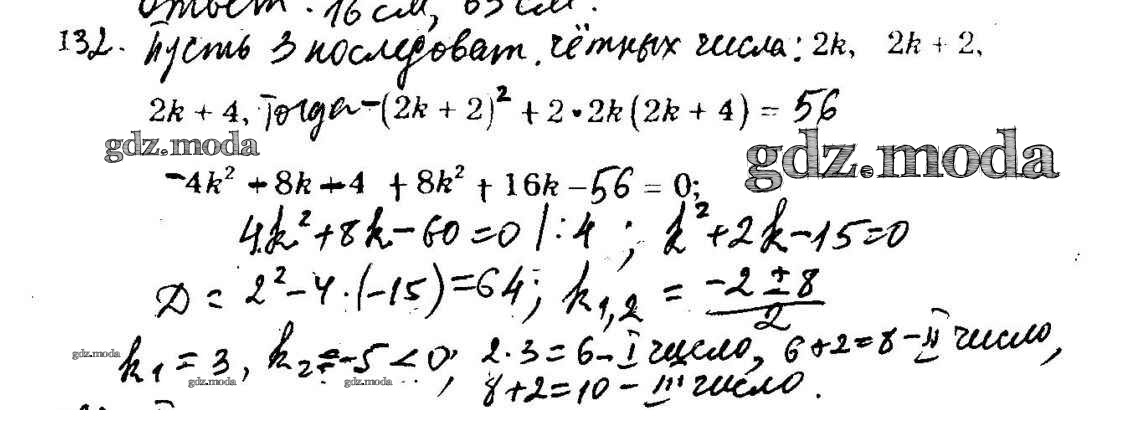 Ответ: 16 см, 63 см.
132. Пусть 3 последоват. чётных числа: 2k, 2k + 2,
2k + 4, Тогда -(2k + 2)² + 2 · 2k (2k + 4) = 56
gdz.moda gdz.moda
-4k² - 8k - 4 + 8k² + 16k - 56 = 0;
4k² + 8k - 60 = 0 | : 4 ; k² + 2k - 15 = 0
D = 2² - 4 · (-15) = 64; k₁,₂ = (-2 ± 8)/2
gdz.moda k₁ = 3, k₂ = -5 < 0; 2 · 3 = 6 - I число, 6 + 2 = 8 - II число,
gdz.moda gdz.moda 8 + 2 = 10 - III число.